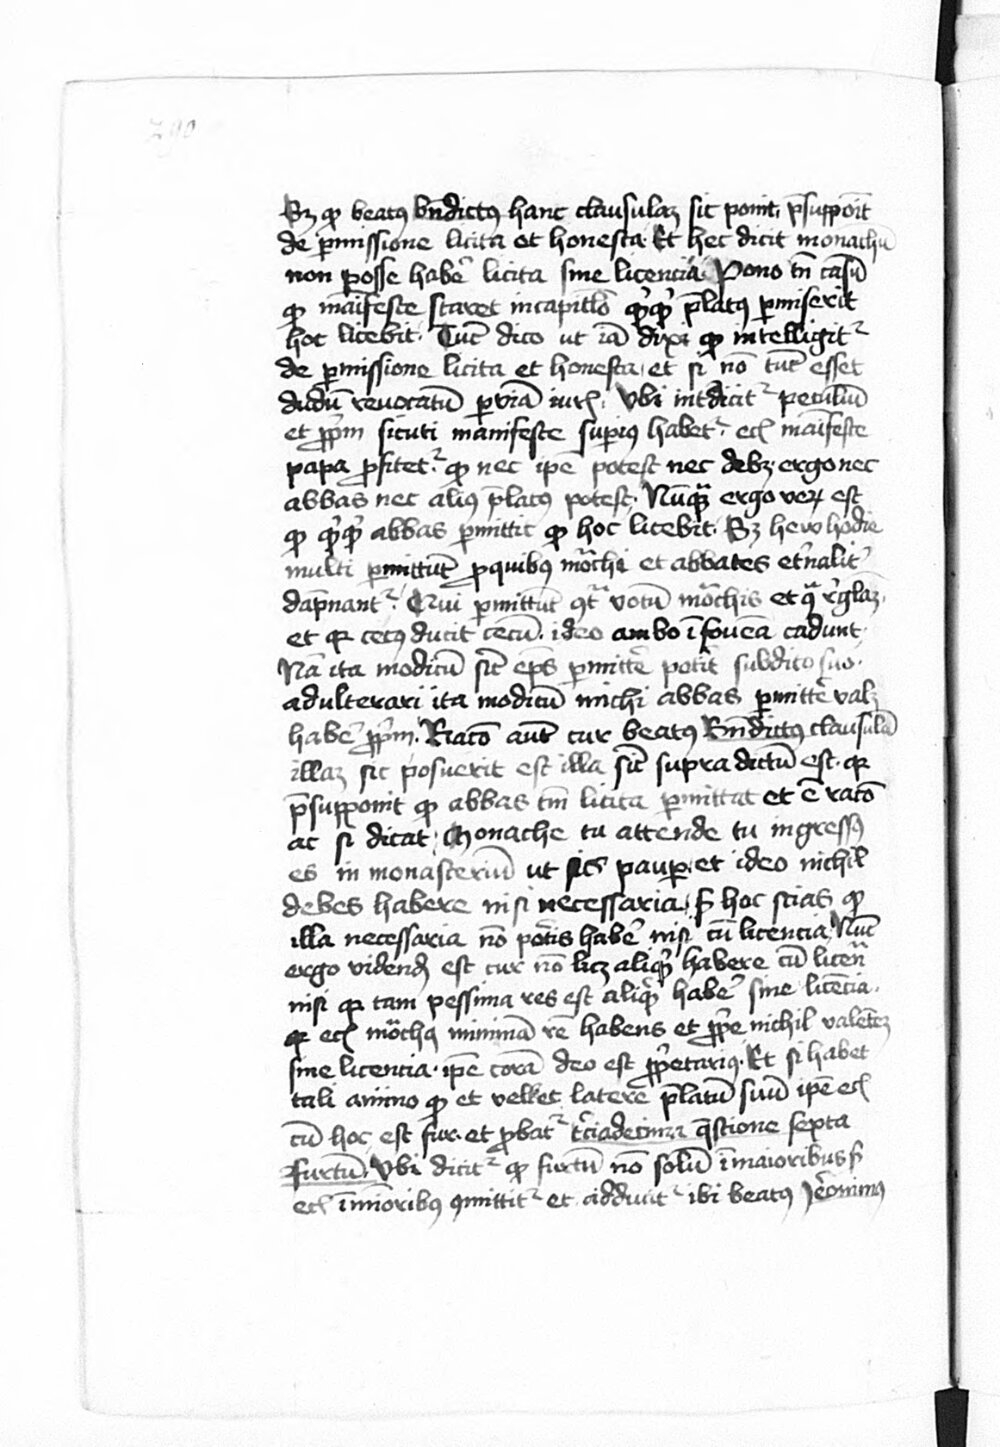 290
Sz ꝙ beatꝯ bn̄dictꝯ hanc clausulaꝫ sic ponit, p̄supponit
de ꝑmissione licita et honesta. Et hec dicit monachū
non posse habe᷑ licita sine licencia. Pono tn̄ casū
ꝙ māifeste staret in capitlō qꝙ p̄latꝯ ꝑmiserit
hoc licebit. Tūc dico ut iā dixi ꝙ intelligit᷑
de ꝑmissione licita et honesta, et si nō tūc esset
dudū reuocatū ꝑ viā iurꝭ. Vbi int̄dicit᷑ peculiū
et ꝓpm̄ sicuti manifeste superiꝯ habet᷑. ecꝭ māifeste
papa ꝓfitet᷑. ꝙ nec ip̄e potest nec debꝫ ergo nec
abbas nec aliꝯ p̄latꝯ potest. Nūquā ergo veꝝ est
ꝙ abbas ꝑmittit ꝙ hoc licebit. Sꝫ heu hodie
multi ꝑmittūt ꝓ quibꝯ mōchi et abbates et̄nalit᷑
dāpnant᷑. Qui ꝑmittūt ꝯt̄ votū mōchis et ꝯ̄ r̄glaꝫ.
et qꝛ cecꝯ ducit cecū. ideo ambo ī foueā cadunt.
Nā ita modicū sic̄ ep̄s ꝑmitt̄e pot̄it subdito suo.
adulterari ita modicū michi abbas ꝑmitt̄e valꝫ
habe᷑ ꝓpm̄. Racō aut̄ cur beatꝯ Bn̄dictꝯ clausulā
illaꝫ sic posuerit est illa sic̄ supra dictū est. qꝛ
p̄supponit ꝙ abbas tm̄ licita ꝑmittat et ē racō
ac si dicat, Monache tu attende tu ingressꝯ
es in monasteriū ut sis pauꝑ et ideo nichil
debes habere nisi necessaria, sꝫ hoc scias ꝙ
illa necessaria nō pot̄is habe᷑ nisi cū licencia, Nūc
ergo videndꝭ est cur nō licꝫ aliqͥd habere cū licen̄
nisi qꝛ tam pessima res est aliqͥd habe᷑ sine licēcia.
qꝛ ecꝭ mōchꝯ minimā rē habens et ꝓpe nichil valētē
sine licencia. ip̄e corā deo est ꝓp̄etariꝯ. Et si habet
tali animo ꝙ et vellet latere p̄latū suū ip̄e ecꝭ
cū hoc est fur. et ꝓbat᷑ t̄ciadecima q̄stione septa
furtū. Vbi dicit᷑ ꝙ furtū nō solū ī maioribus sꝫ
ecꝭ ī mīoribꝯ ꝯmittit᷑ et adducit᷑ ibi beatꝯ Jeronimꝯ